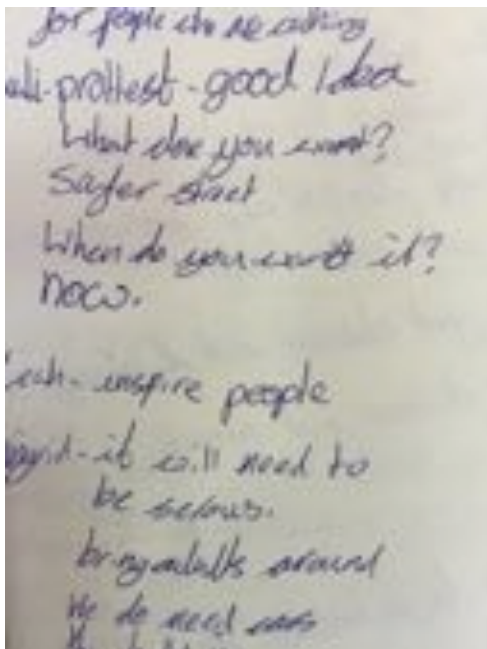 for people who are
-prottest - good Idea
What doe you want?
Safer street
When do you want it?
Now.
- inspire people
- it will need to
be serious.
bring adults around
We do need cars